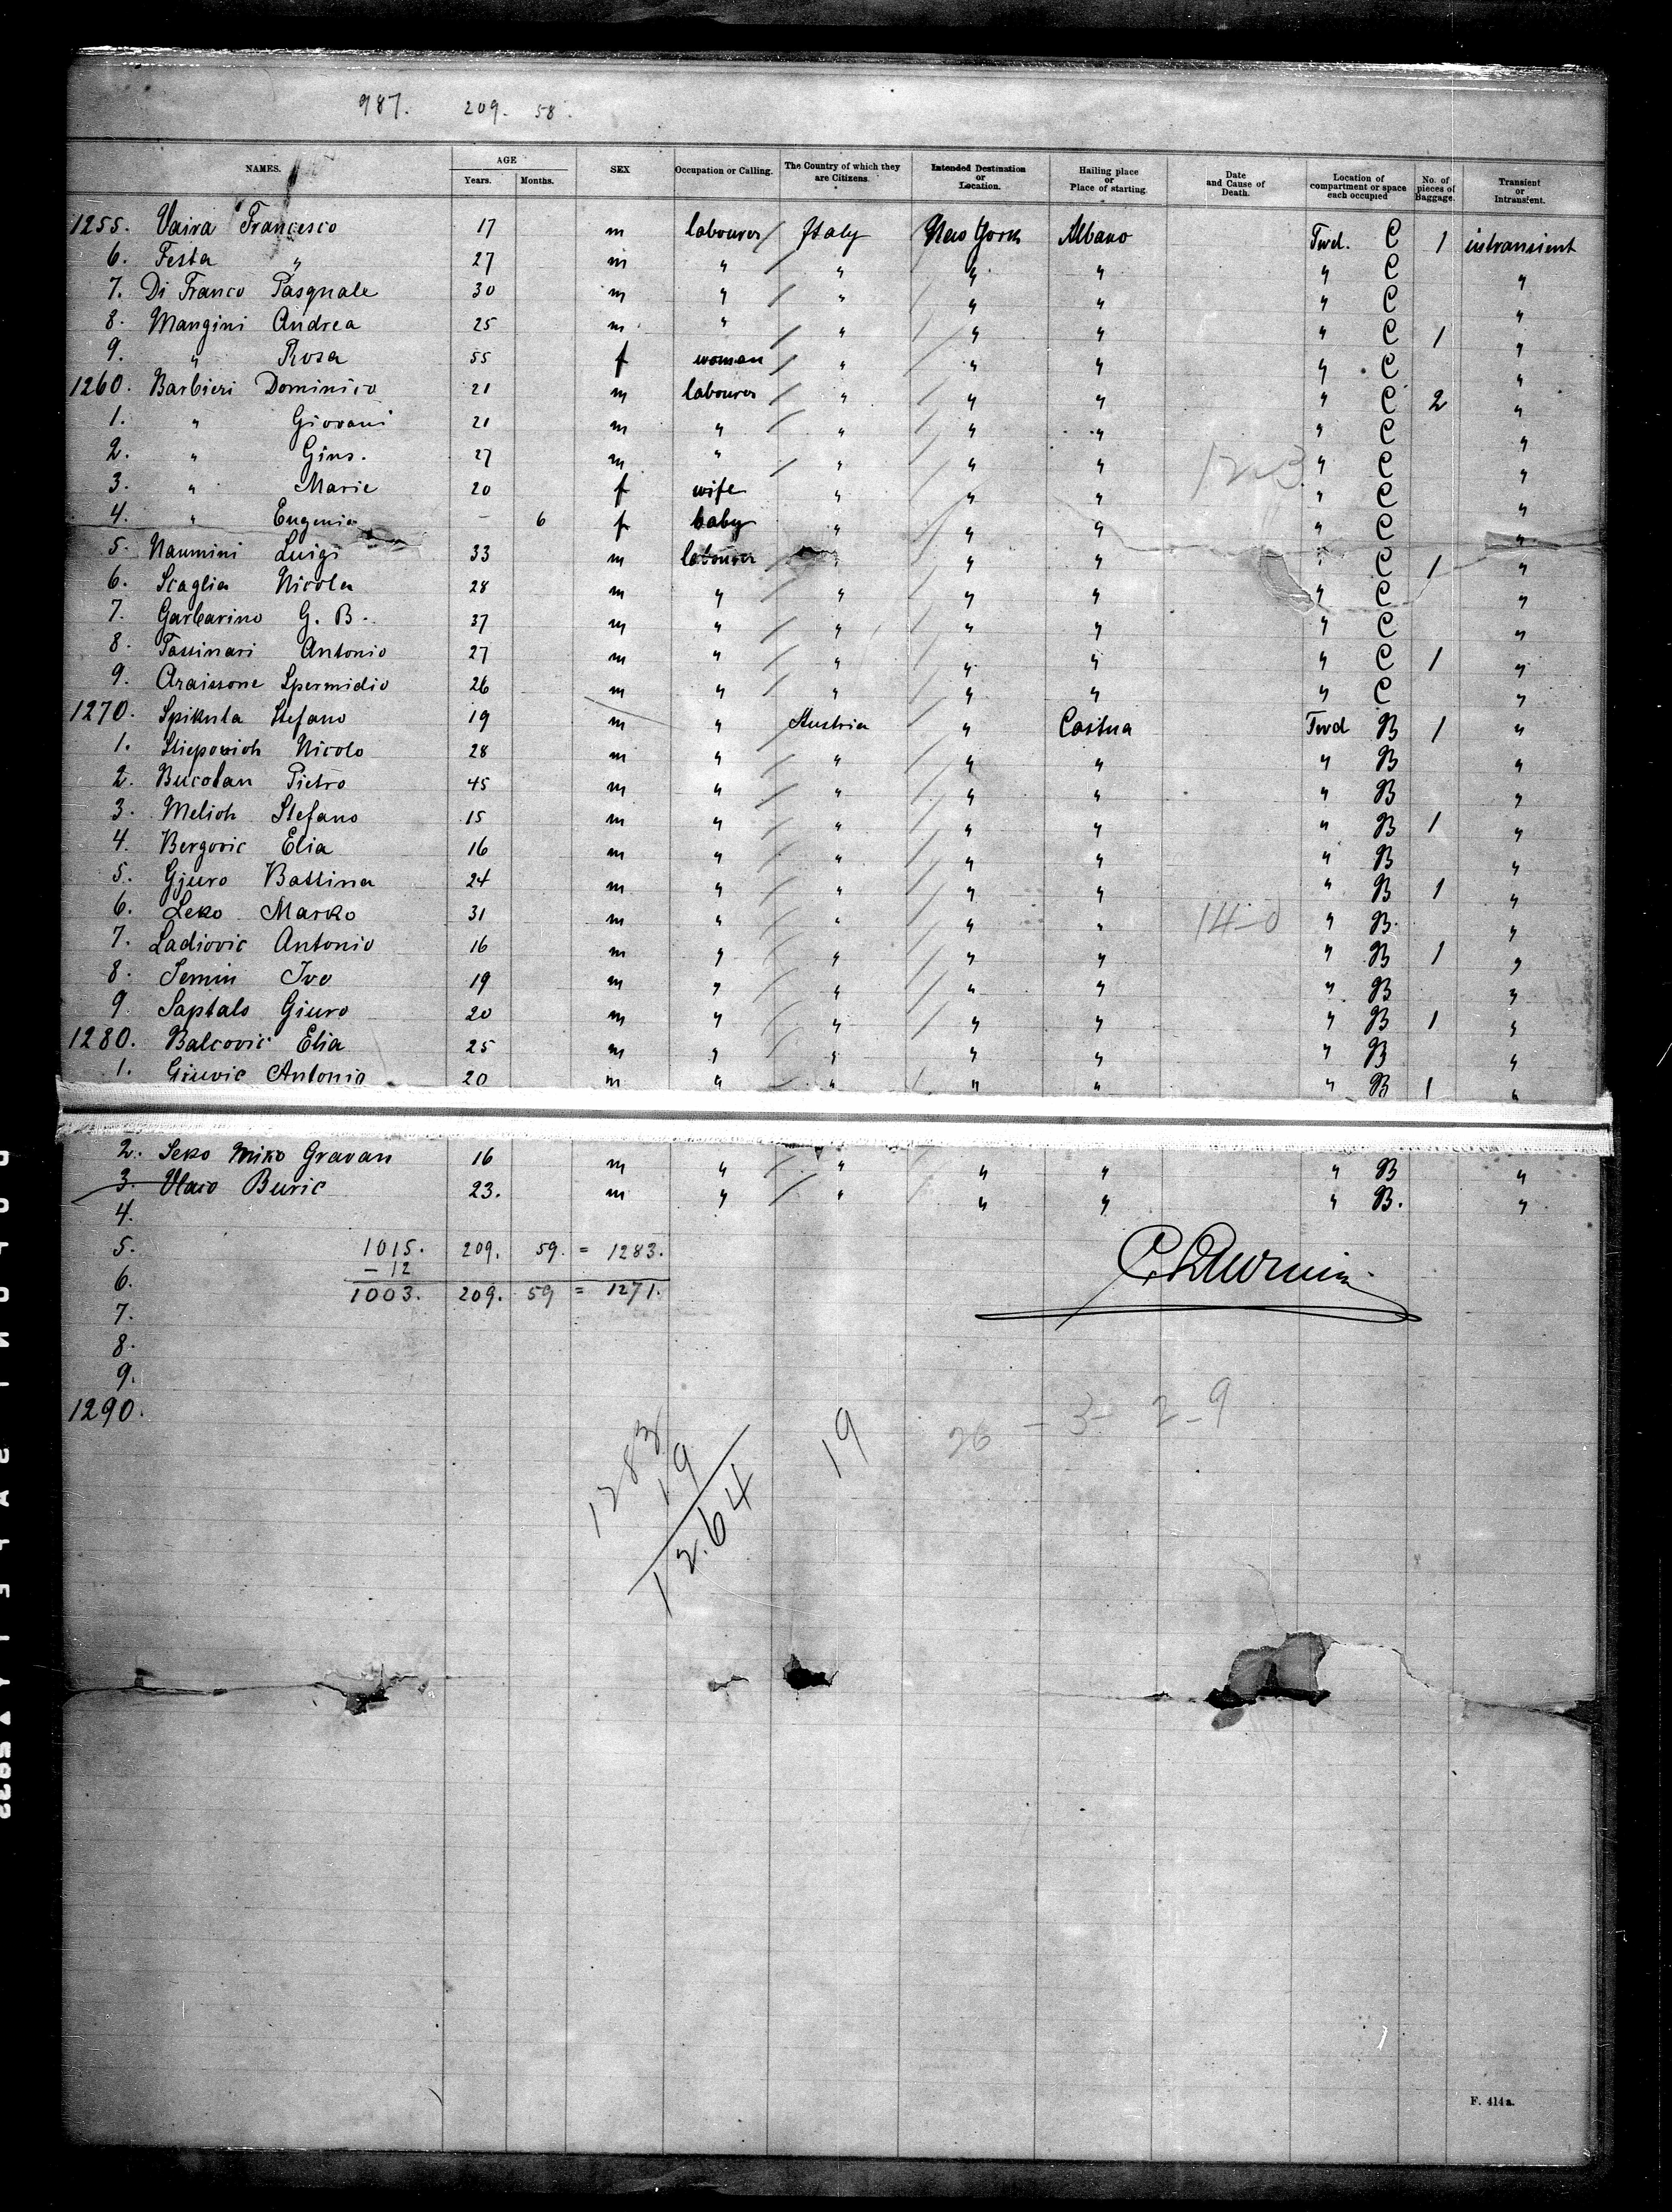 987. 209. 58.
NAMES. AGE Years. Months. SEX Occupation or Calling. The Country of which they are Citizens. Intended Destination or Location. Hailing place or Place of starting. Date and Cause of Death. Location of compartment or space each occupied No. of pieces of Baggage. Transient or Intransient.
1255. Vaira Francesco 17 m labourer Italy New York Albano Twd. C 1 intransient
6. Festa " 27 m " " " " " C "
7. Di Franco Pasquale 30 m " " " " " C "
8. Mangini Andrea 25 m " " " " " C 1 "
9. " Rosa 55 f woman " " " " C "
1260. Barbieri Dominico 21 m labourer " " " " C 2 "
1. " Giovani 21 m " " " " " C "
2. " Gius. 27 m " " " " 12-3 " C "
3. " Marie 20 f wife " " " " C "
4. " Eugenia - 6 f baby " " " " C "
5. Naumini Luigi 33 m labourer " " " " C 1 "
6. Scaglia Nicola 28 m " " " " " C "
7. Garbarino G. B. 37 m " " " " " C "
8. Tassinari Antonio 27 m " " " " " C 1 "
9. Araissone Spermidio 26 m " " " " " C "
1270. Spikula Stefano 19 m " Austria " Castua Twd B 1 "
1. Stiepovich Nicolo 28 m " " " " " B "
2. Bucolan Pietro 45 m " " " " " B "
3. Melioh Stefano 15 m " " " " " B 1 "
4. Bergovic Elia 16 m " " " " " B "
5. Gjuro Bassina 24 m " " " " " B 1 "
6. Leko Marko 31 m " " " " 14-0 " B. "
7. Ladiovic Antonio 16 m " " " " " B 1 "
8. Semin Ivo 19 m " " " " " B "
9 Saptalo Giuro 20 m " " " " " B 1 "
1280. Balcovic Elia 25 m " " " " " B "
1. Giuvic Antonio 20 m " " " " " B 1 "
2. Seko Miko Gravan 16 m " " " " " B "
3. Vlaio Buric 23. m " " " " " B. "
4.
5. 1015. 209. 59. = 1283.
- 12
6. 1003. 209. 59 = 1271.
7.
8.
9.
1290.
26 - 3 - 2 - 9
19
1283
19
1264
F. 414a.